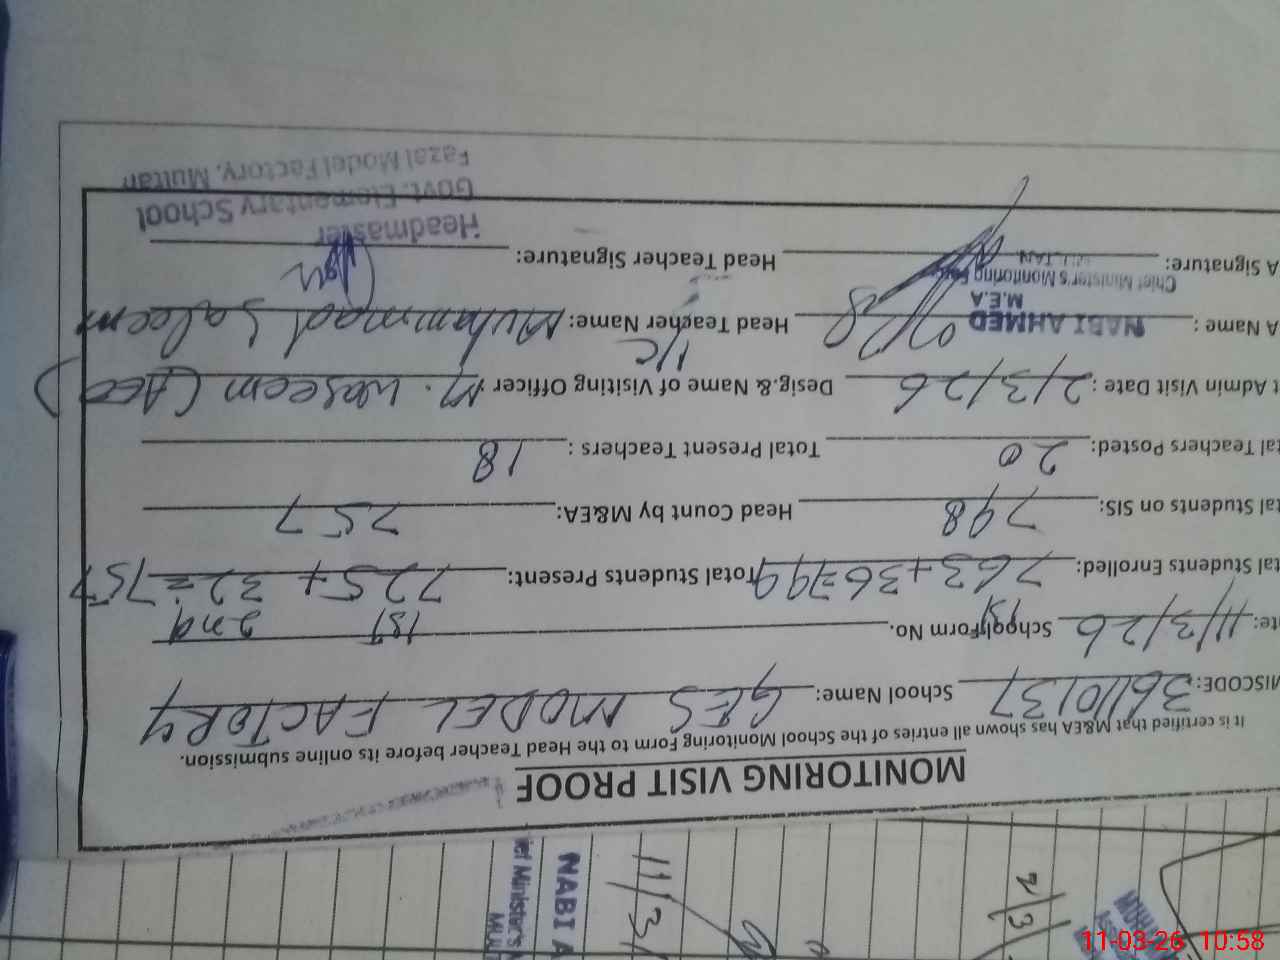 MONITORING VISIT PROOF
It is certified that M&EA has shown all entries of the School Monitoring Form to the Head Teacher before its online submission.
MISCODE: 36110137 School Name: GES MODEL FACTORY
te: 11/3/26 School Form No. 1st 2nd
tal Students Enrolled: 763+36=799 Total Students Present: 725+32=757
tal Students on SIS: 798 Head Count by M&EA: 757
tal Teachers Posted: 20 Total Present Teachers: 18
t Admin Visit Date: 2/3/26 Desig.& Name of Visiting Officer M. Waseem (AEO)
A Name: NABI AHMED Head Teacher Name: I/C Muhammad Saleem
M.E.A
Chief Minister's Monitoring
A Signature: Head Teacher Signature:
Headmaster
Govt. Elementary School
Fazal Model Factory, Multan
NABI A
ief Minister's
11/3/
2/3/
11-03-26 10:58